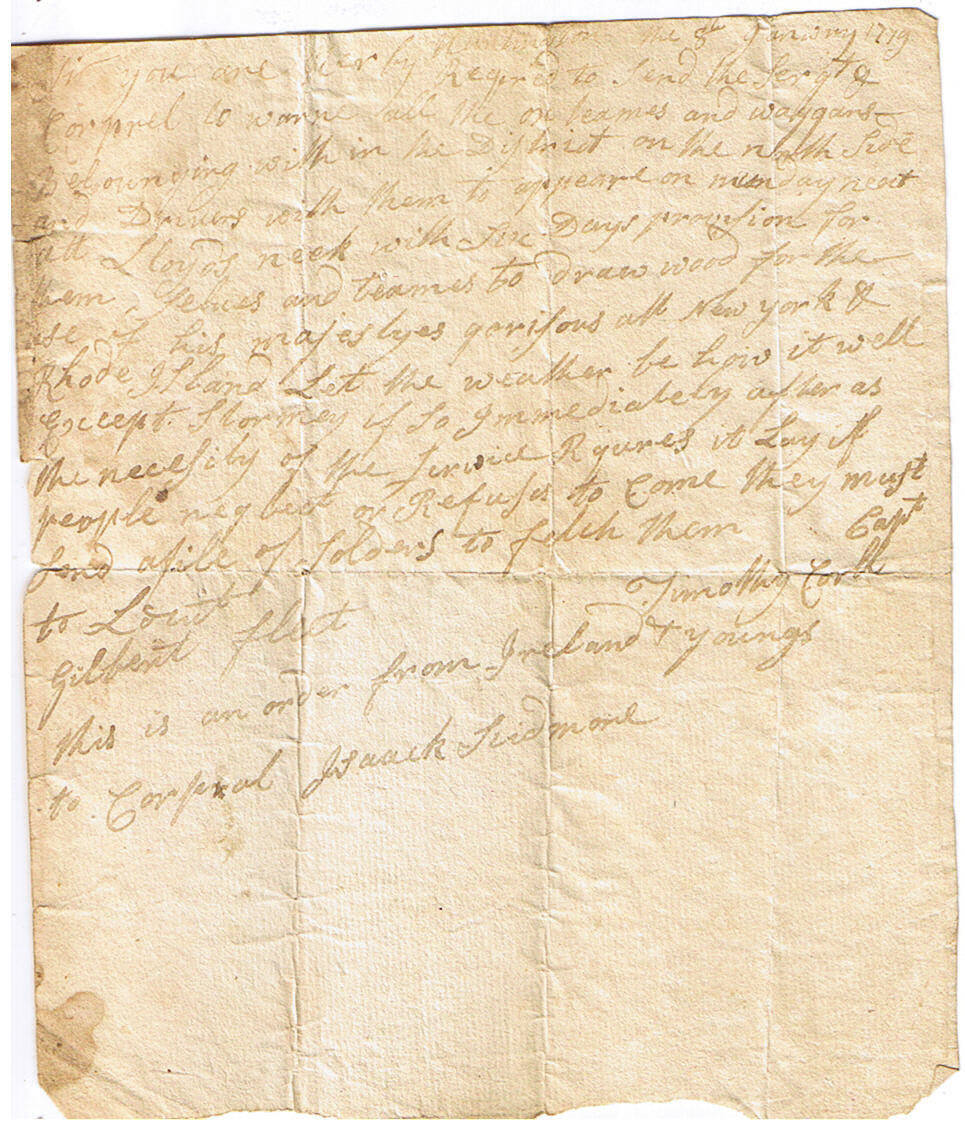 Huntington the 8th January 1779
Sir you are hierby Regired to Send the Sergt &
Corprel to warne all the ox teames and waggans
Belounying with in the District on the north Side
and Drivers with them to appeare on munday next
att Lloyds neck with Six Days provision for
them Selves and teames to draw wood for the
use of his majestyes garisons att New york &
Rhode Island Let the weather be how it well
Except Stormey if So Immediately after as
the necesity of the Service Rqures it Luy if
people neglect or Refuse to Come they must
Send a file of Solders to fetch them Capt
to Lewt Timothy
Gilbert fleet
this is an order from Ireland & youngs
to Corpral Isaack Scidmore